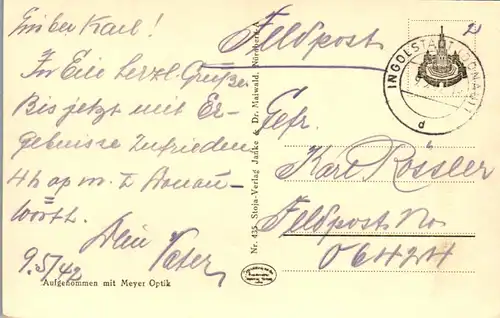 Lieber Karl!
In Eile herzl. Grüße
Bis jetzt mit Er-
gebnisse zufrieden
4h ap m. Donau-
wörth.
Dein Vater
9.5/42
Aufgenommen mit Meyer Optik
Nr. 435 Stoja-Verlag Janke & Dr. Maiwald, Nürnberg
Feldpost
INGOLSTADT (DONAU) 1
d
Gefr.
Karl Rössler
Feldpost No
06424